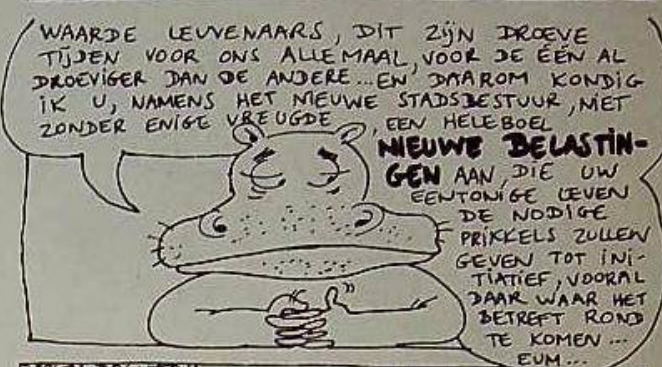 WAARDE LEUVENAARS, DIT ZIJN DROEVE
TIJDEN VOOR ONS ALLEMAAL, VOOR DE ÉÉN AL
DROEVIGER DAN DE ANDERE...EN DAAROM KONDIG
IK U, NAMENS HET NIEUWE STADSBESTUUR, NIET
ZONDER ENIGE VREUGDE, EEN HELEBOEL
NIEUWE BELASTIN-
GEN AAN, DIE UW
EENTONIGE LEVEN
DE NODIGE
PRIKKELS ZULLEN
GEVEN TOT INI-
TIATIEF, VOORAL
DAAR WAAR HET
BETREFT ROND
TE KOMEN...
EUM...